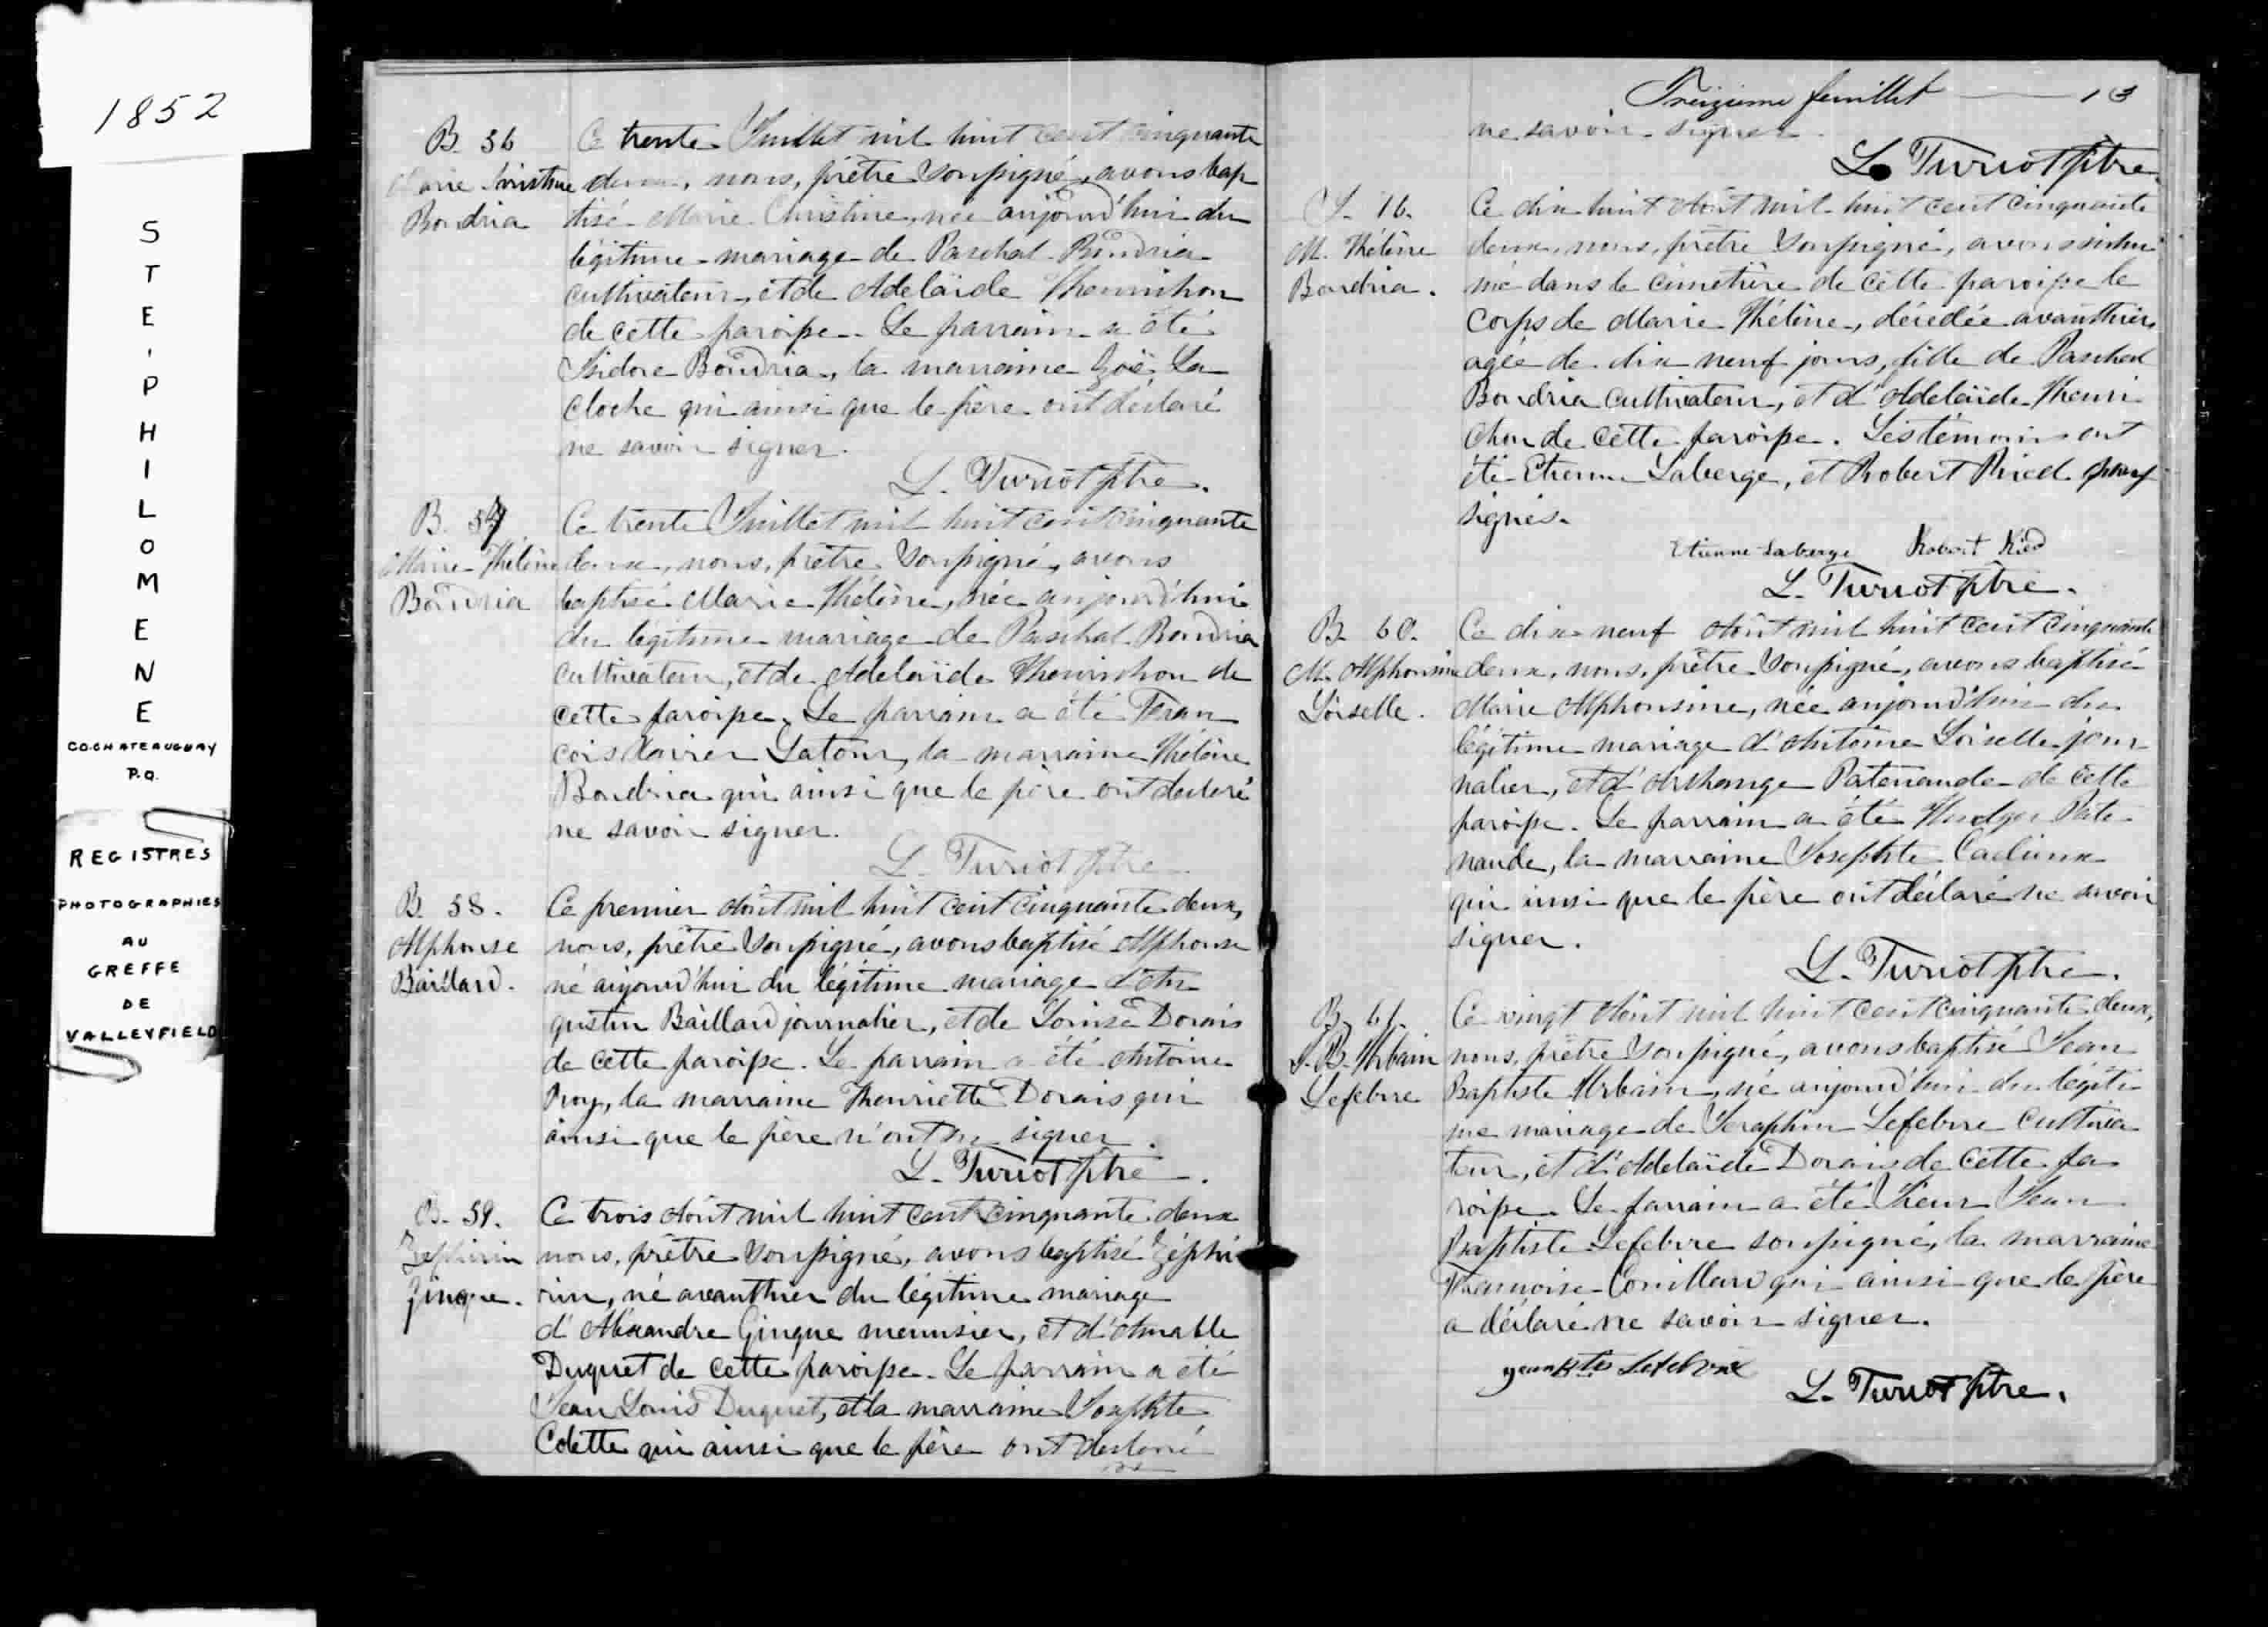 1852
STE, PHILOMENE
CO. CHATEAUGUAY
P.Q.
REGISTRES
PHOTOGRAPHIES
AU
GREFFE
DE
VALLEYFIELD
B. 56
Marie Christine
Boudria
Ce trente Juillet mil huit cent cinquante
deux, nous, prêtre soussigné, avons bap
tisé Marie Christine, née aujourd'hui du
légitime mariage de Paschal Boudria
cultivateur, et de Adelaïde Henrichon
de cette paroisse. Le parrain a été
Isidore Boudria, la marraine Zoë La
cloche qui ainsi que le père ont déclaré
ne savoir signer.
L. Turiot ptre.
B. 57
Marie Hélène
Boudria
Ce trente Juillet mil huit cent cinquante
deux, nous, prêtre soussigné, avons
baptisé Marie Hélène, née aujourd'hui
du légitime mariage de Paschal Boudria
cultivateur, et de Adelaïde Henrichon de
cette paroisse. Le parrain a été Fran
cois Xavier Latour, la marraine Hélène
Boudria qui ainsi que le père ont déclaré
ne savoir signer.
L. Turiot ptre
B. 58.
Alphonse
Baillard.
Ce premier Août mil huit cent cinquante deux,
nous, prêtre soussigné, avons baptisé Alphonse
né aujourd'hui du légitime mariage d'Au
gustin Baillard journalier, et de Louise Dorais
de cette paroisse. Le parrain a été Antoine
Roy, la marraine Henriette Dorais qui
ainsi que le père n'ont su signer.
L. Turiot ptre.
B. 59.
Zéphirin
Gingue.
Ce trois Août mil huit cent cinquante deux
nous, prêtre soussigné, avons baptisé Zéphi
rin, né avanthier du légitime mariage
d'Alexandre Gingue menuisier, et d'Amable
Duquet de cette paroisse. Le parrain a été
Jean Louis Duquet, et la marraine Josephte
Colette qui ainsi que le père ont déclaré
ne
Treizieme feuillet 13
ne savoir signer.
L. Turiot ptre.
S. 16.
M. Hélène
Boudria.
Ce dix huit Août mil huit cent cinquante
deux, nous, prêtre soussigné, avons inhu
mé dans le cimetière de cette paroisse le
corps de Marie Hélène, décédée avanthier,
agée de dix neuf jours, fille de Paschal
Boudria cultivateur, et d'Adelaïde Henri
chon de cette paroisse. Les témoins ont
été Etienne Laberge, et Robert Ried sous
signés.
Etienne Laberge Robert Ried
L. Turiot ptre.
B. 60.
M. Alphonsine
Loiselle.
Ce dix neuf Août mil huit cent cinquante
deux, nous, prêtre soussigné, avons baptisé
Marie Alphonsine, née aujourd'hui du
légitime mariage d'Antoine Loiselle jour
nalier, et d'Archange Patenaude de cette
paroisse. Le parrain a été Hudger Pate
naude, la marraine Josephte Cadieux
qui ainsi que le père ont déclaré ne savoir
signer.
L. Turiot ptre.
B. 61.
J. B. Urbain
Lefebvre
Ce vingt Août mil huit cent cinquante deux,
nous, prêtre soussigné, avons baptisé Jean
Baptiste Urbain, né aujourd'hui du légiti
me mariage de Seraphin Lefebvre cultiva
teur, et d'Adelaïde Dorais de cette pa
roisse. Le parrain a été Sieur Jean
Baptiste Lefebvre soussigné, la marraine
Francoise Couillard qui ainsi que le père
a déclaré ne savoir signer.
Lefebvre
L. Turiot ptre.